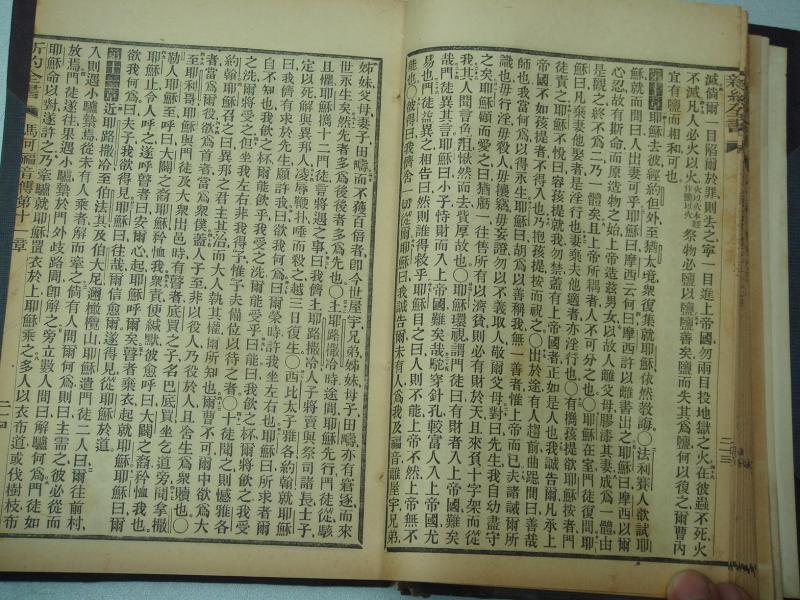 滅倘爾一目陷爾於罪則去之寧一目進上帝國勿兩目投地獄之火在彼蟲不死火
不滅凡人必火以火祭物必鹽以鹽鹽善矣鹽而失其爲鹽何以復之爾曹內
宜有鹽而相和可也
第十章耶穌去彼經約但外至猶太境衆復集就耶穌依然敎誨○法利賽人欲試耶
穌就而問曰人出妻可乎耶穌曰摩西云何曰摩西許以離書出之耶穌曰摩西以爾
心忍故有斯命而原造物之始上帝造茲男女以故人離父母膠漆其妻成爲一體由
是觀之終不爲二乃一體矣且上帝所耦者人不可分之也○耶穌在室門徒復問耶
穌曰凡棄妻他娶者是淫行也妻棄夫他適者亦淫行也○有攜孩提欲耶穌按者門
徒責之耶穌不悅曰容孩提就我勿禁蓋有上帝國者正如是人也我誠告爾凡承上
帝國不如孩提者不得入也乃抱孩提按而祝之○出於途有人趨前曲跽問曰善哉
師也我當何爲可以得永生耶穌曰胡爲以善稱我無一善者惟上帝而已夫諸誡爾所
識也毋行淫毋殺人毋攘竊毋妄證勿以不義取人敬爾父母對曰先生我自幼盡守
之矣耶穌顧而愛之曰猶虧一往售所有以濟貧則必有財於天且來負十字架而從
我其人聞言色沮愀然而去貲厚故也○耶穌環視謂門徒曰有財者入上帝國難矣
哉門徒異其言耶穌又曰小子恃財而入上帝國難矣哉駝穿針孔較富人入上帝國尤
易也門徒益異之相告曰然則誰得救乎耶穌目之曰人則不能上帝不然上帝無不
能也○彼得曰我儕舍一切從爾耶穌曰我誠告爾未有人爲我及福音離屋宇兄弟
姊妹父母妻子田疇而不獲百倍者卽今世屋宇兄弟姊妹母子田疇亦有窘逐而來
世永生矣然先者多爲後後者多爲先也○上耶路撒冷時途間耶穌先行門徒從駭
且懼耶穌攜十二門徒言將遇之事曰我儕上耶路撒冷人子將賣與祭司諸長士子
定以死解與異邦人凌辱鞭扑唾而殺之越三日復生○西比太子雅各約翰就耶穌
曰我儕有求於先生願許我曰欲我何爲曰爾榮時許我坐爾左右耶穌曰所求者爾
自不知也我飲之杯爾能飲乎我受之洗爾能受乎曰能曰我飲之杯爾將飲之我受
之洗爾將受之但坐我左右非我得予惟予夫備位以待之者○十徒聞之則憾雅各
約翰耶穌召之曰異邦之君主其治而大人執其權爾所知也爾曹不可爾中欲爲大
者當爲爾役欲爲首者當爲衆僕蓋人子至非以役人乃役於人且舍生爲衆贖也○
至耶利哥耶穌與門徒及大衆出邑時有瞽者底買之子名巴底買坐乞道旁聞拿撒
勒人耶穌至呼曰大闢之裔耶穌矜恤我衆責使緘默彼愈呼曰大闢之裔矜恤我也
耶穌止令人呼之遂呼瞽者曰安爾心起耶穌呼爾矣瞽者棄衣起就耶穌耶穌曰爾
欲我何爲曰夫子我欲得見耶穌曰往哉爾信愈爾遂得見從耶穌於道
第十一章近耶路撒冷至伯法其及伯大尼邇橄欖山耶穌遣門徒二人曰爾往前村
入則遇小驢縶焉從未有人乘者解而牽之倘有人問爾何爲則曰主需之彼必從而
放焉門徒遂往果遇小驢縶於門外歧路間卽解之旁立數人問曰解驢何爲門徒如
耶穌命以對遂許之乃牽驢就耶穌置衣於上耶穌乘之多人以衣布道或伐樹枝布
新約全書
馬可福音傳第十一章
二十四
新約全書
二十三